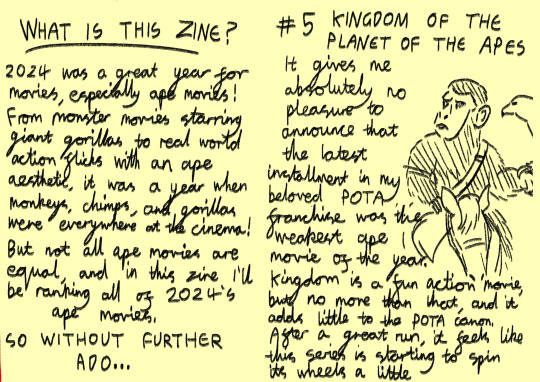 WHAT IS THIS ZINE?
2024 was a great year for
movies, especially ape movies!
From monster movies starring
giant gorillas to real world
action flicks with an ape
aesthetic, it was a year when
monkeys, chimps, and gorillas
were everywhere at the cinema!
But not all ape movies are
equal, and in this zine I'll
be ranking all of 2024's
ape movies.
SO WITHOUT FURTHER
ADO...
#5 KINGDOM OF THE
PLANET OF THE APES
It gives me
absolutely no
pleasure to
announce that
the latest
installment in my
beloved POTA
franchise was the
weakest ape
movie of the year.
Kingdom is a fun action movie,
but no more than that, and it
adds little to the POTA canon.
After a great run, it feels like
this series is starting to spin
its wheels a little